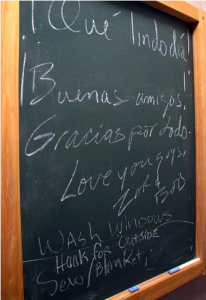 ¡Qué lindo día!
¡Buenas amigos,
Gracias por todo.
Love you guys,
WASH WINDOWS
Hook for OUTSIDE
Sew/Blanket,